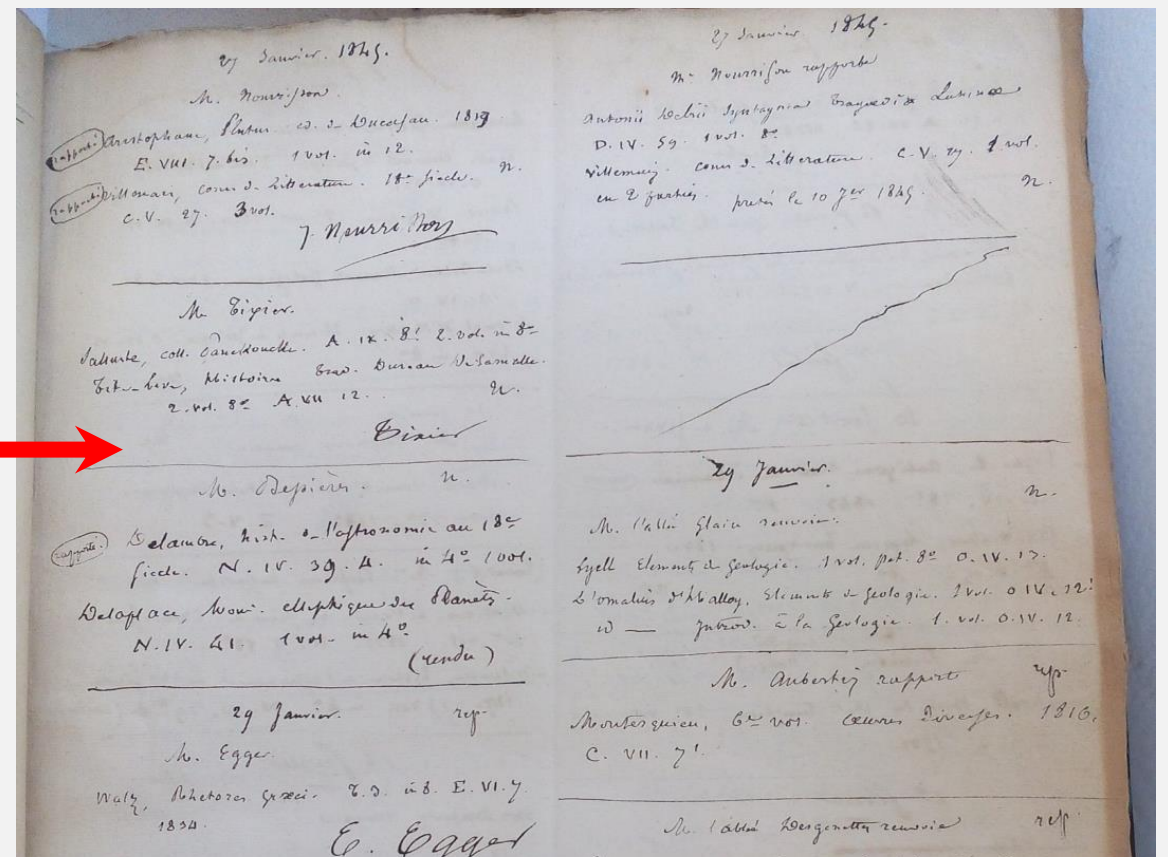 27 Janvier. 1845.
M. Nourrisson.
rapporté Aristophane, Plutus. ed. de Ducasau. 1819
E. VIII. 7. bis. 1 vol. in 12.
rapporté Villemain, cours de Litterature. 18e siecle. n.
C. V. 27. 3 vol.
J. Nourrisson
M. Tixier.
Salluste, coll. Panckoucke. A. IX. 8! 2. vol. in 8°
Tite-Live, Histoire trad. Dureau Delamalle.
2. vol. 8° A. VII 12. n.
Tixier
M. Depières. n.
rapporté. Delambre, hist. de l'astronomie au 18e
siecle. N. IV. 39. 4. in 4° 1 vol.
Delaplace, Mouv. elliptique des Planèts.
N. IV. 41. 1 vol. in 4°
(rendu)
29 Janvier. rep.
M. Egger.
Walz, Rhetores græci. T. 3. in 8. E. VI. 7.
1834.
E. Egger
27 Janvier 1845.
Mr Nourrisson rapporte
Antonii Delrii Syntagma Tragœdiæ Latinæ
D. IV. 59. 1 vol. 8°
Villemain. cours de Litterature. C. V. 27. 1 vol.
en 2 parties. prêté le 10 Jer 1845. n.
29 Janvier.
n.
M. l'abbé Glaire renvoie.
Lyell Elements de geologie. 1 vol. pet. 8° O. IV. 13.
D'omalius d'Halloy, Elements de geologie. 1 vol. O IV. 12!
id — Introd. à la Geologie. 1. vol. O. IV. 12.
M. Aubertin rapporte rep.
Montesquieu, 6e vol. Œuvres Diverses. 1816.
C. VII. 7!
M. l'abbé Desgenettes renvoie rep.